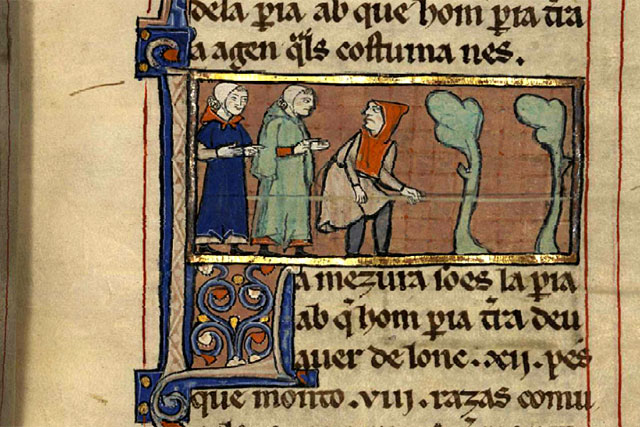 dela ꝑia ab que hom ꝑia t̃ra
a agen q̃ls costuma nes.
La mezura soes la ꝑia
ab q̃ hom ꝑia t̃ra deu
auer de lonc .xij. pes
que monto .viii. razas comu